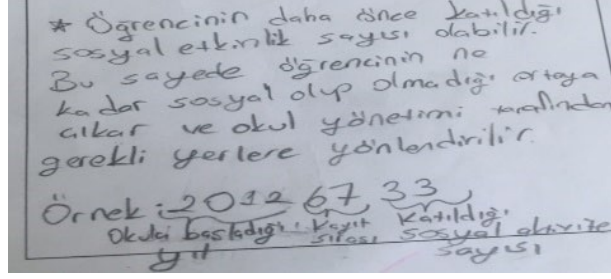 * Öğrencinin daha önce katıldığı
sosyal etkinlik sayısı olabilir.
Bu sayede öğrencinin ne
kadar sosyal olup olmadığı ortaya
çıkar ve okul yönetimi tarafından
gerekli yerlere yönlendirilir.
Örnek: 2012 67 33
Okula başladığı kayıt katıldığı
yıl sırası sosyal aktivite
sayısı